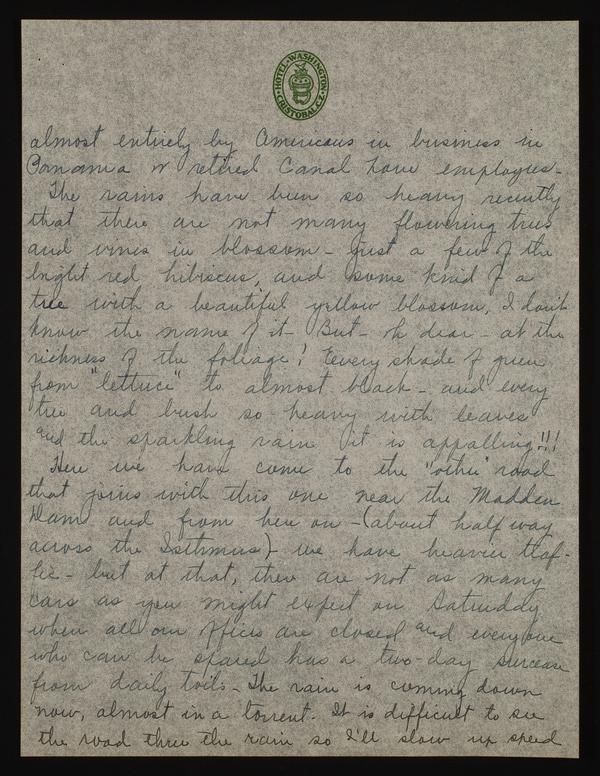 HOTEL WASHINGTON
CRISTOBAL, C.Z.
almost entirely by Americans in business in
Panama or retired Canal Zone employees -
The rains have been so heavy recently
that there are not many flowering trees
and vines in blossom - just a few of the
bright red hibiscus, and some kind of a
tree with a beautiful yellow blossom, I don't
know the name of it - But - oh dear - at the
richness of the foliage! Every shade of green
from "lettuce" to almost black - and every
tree and bush so heavy with leaves
and the sparkling rain it is appalling!!!
Here we have come to the "other" road
that joins with this one near the Madden
Dam and from here on - (about half way
across the Isthmus) - we have heavier traf-
fic - but at that, there are not as many
cars as you might expect on Saturday
when all our offices are closed and everyone
who can be spared has a two-day surcease
from daily toils - The rain is coming down
now, almost in a torrent. It is difficult to see
the road thru the rain so I'll slow up speed